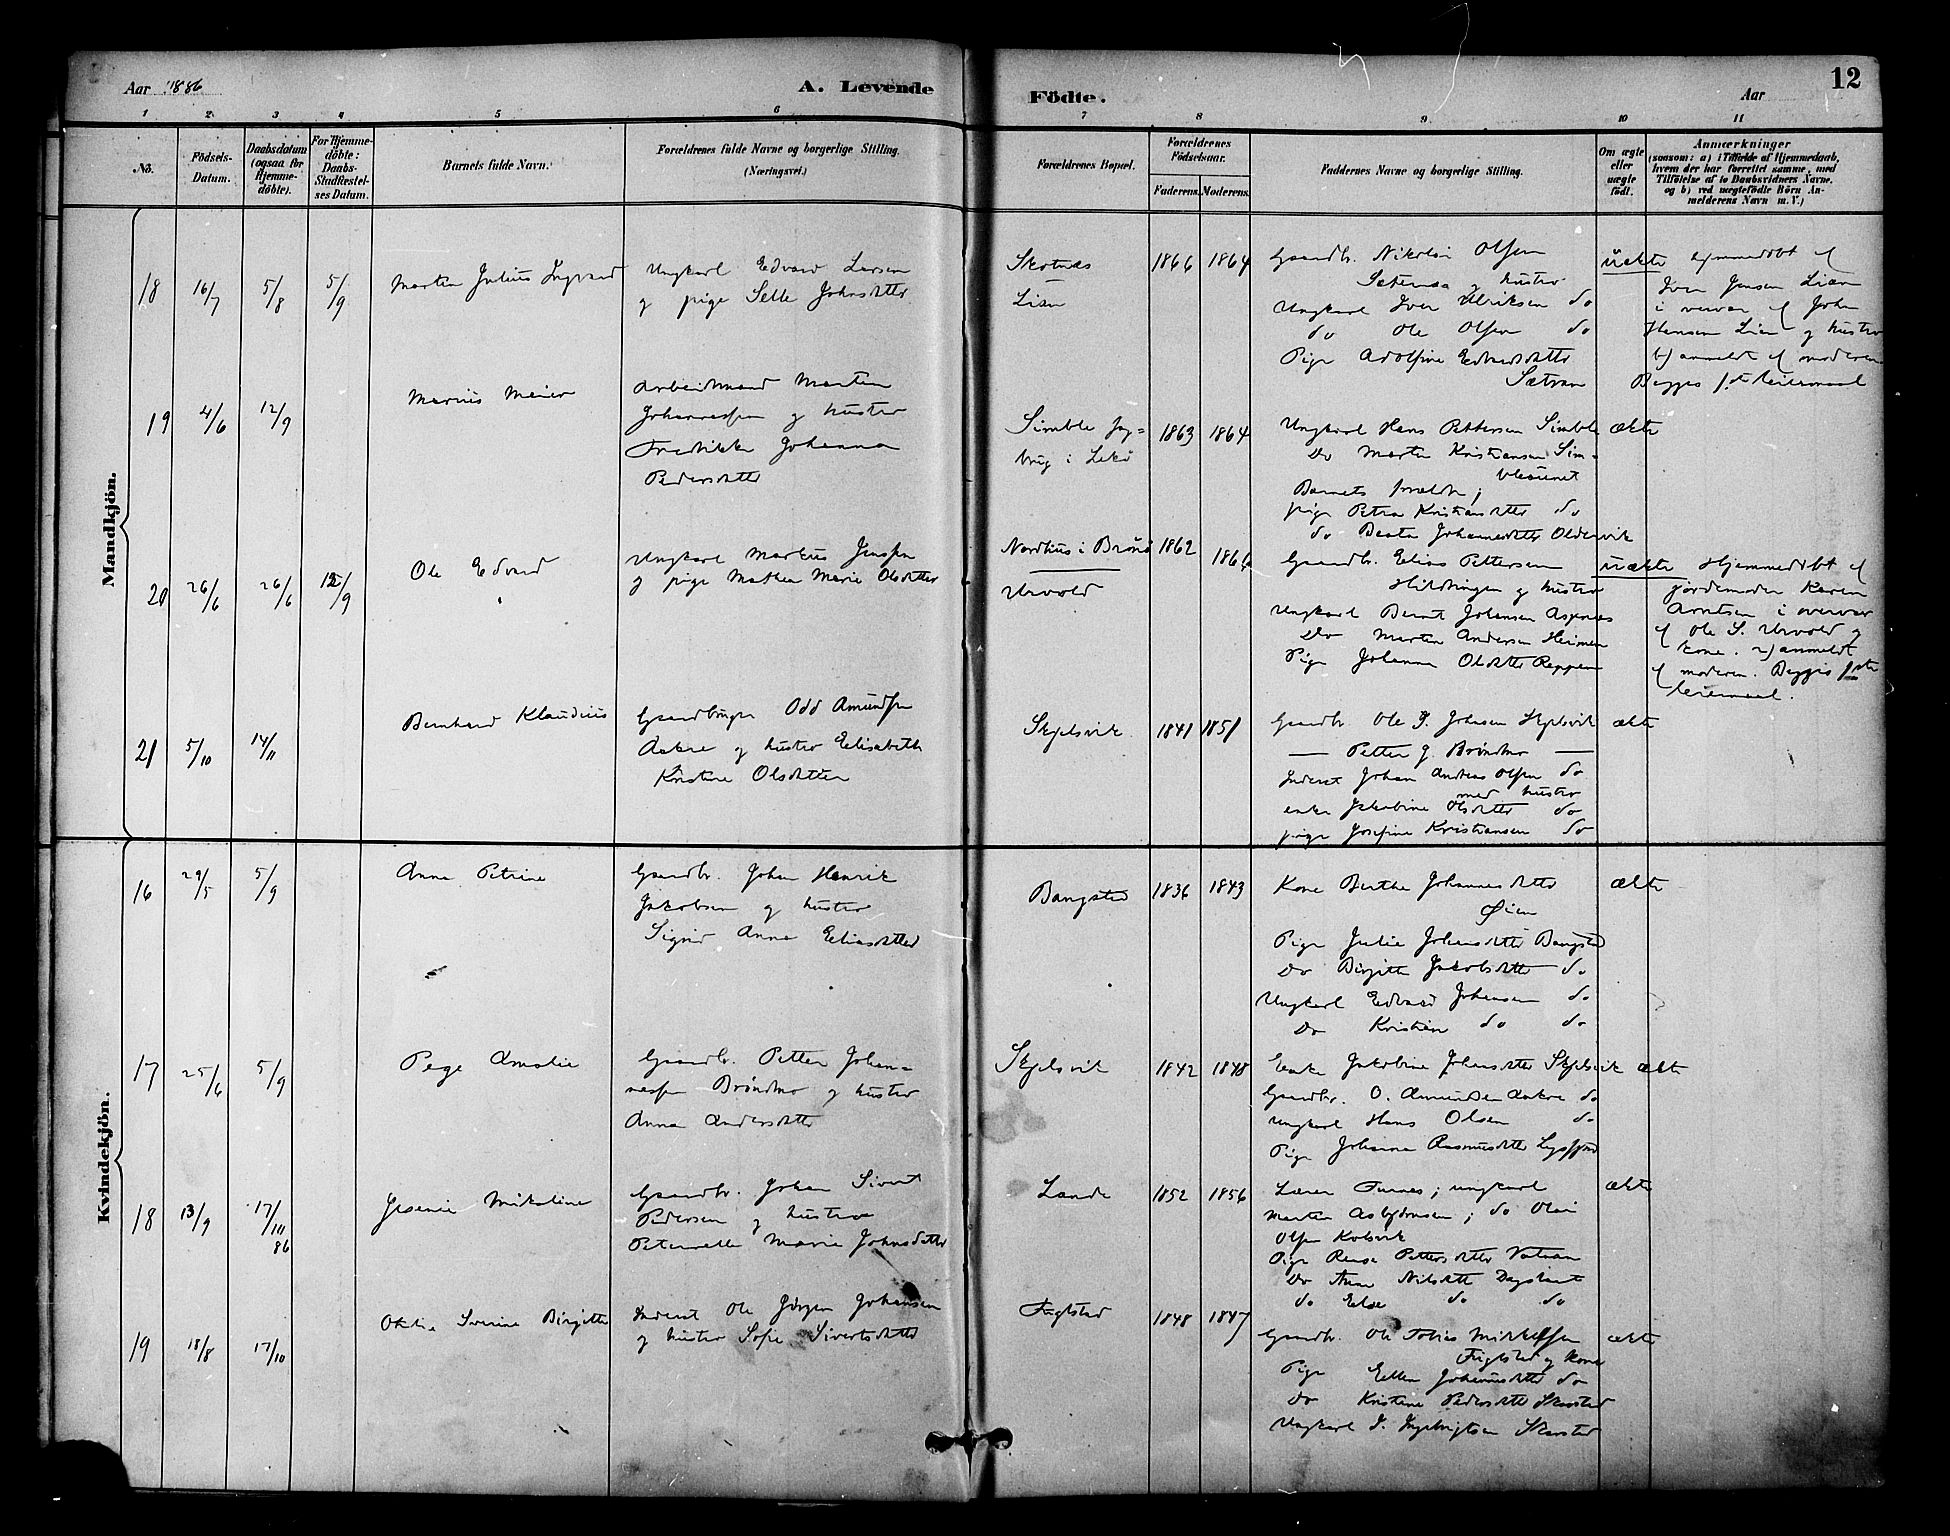 Aar 1886
A. Levende
Födte.
Aar
12
1 2 3 4 5 6 7 8 9 10 11
No.
Födsels-Datum.
Daabsdatum (ogsaa for Hjemme-döbte).
For Hjemme-döbte: Daabs-Stadfæstel-ses Datum.
Barnets fulde Navn.
Forældrenes fulde Navne og borgerlige Stilling.
(Næringsvei.)
Forældrenes Bopæl.
Forældrenes Födselsaar.
Faderens. Moderens.
Faddernes Navne og borgerlige Stilling.
Om ægte eller uægte födt.
Anmærkninger
(saasom: a) i Tilfælde af Hjemmedaab,
hvem der har forrettet samme, med
Tilföielse af to Daabsvidners Navne,
og b) ved uægtefödte Börn An-
melderens Navn m. V.)
Mandkjön.
18 16/7 5/8 5/9
Martin Julius Ingvard
Ungkarl Edvard Larsen
og pige Selle Johnsdatter
Skotnæs
Lian
1866 1864
Gaardbr. Nikolai Olsen
Sæterma og hustro
Ungkarl Iver Ulriksen do
do Ole Olsen do
Pige Adolfine Edvardsdatter
Sætran
uækte
Hjemmedöbt af
Iver Jensen Lian
i overvær af John
Hansen Lian og hustro
b) anmeldt af moderen
Begges 1ste leiermaal
19 4/6 12/9
Marius Meier
Arbeidsmand Martin
Johannessen og hustro
Fredrikke Johanna
Pedersdatter
Simble Jæg=
brug i Lekö
1863 1864
Ungkarl Hans Pettersen Simble
Do Martin Kristiansen Sim=
blesunet
Barnets forældre;
pige Petra Kristiansdatter do
do Beate Johannesdatter Oldervik
ækte
20 26/6 26/6 12/9
Ole Edvard
Ungkarl Markus Jensen
og pige Mathea Marie Olsdatter
Nordhus i Brönö
Urvold
1862 1866
Gaardbr. Elias Pettersen
Hildringen og hustro
Ungkarl Bernt Johansen Aspenæs
Do Martin Andersen Heimen
Pige Johanna Olsdatter Reppen
uækte
Hjemmedöbt af
jordemoder Karen
Arntsen i overvær
af Ole S. Urvold og
kone. 2) anmeldt
af moderen. Begges 1ste
leiermaal.
21 5/10 14/11
Bernhard Klaudius
Gaardbruger Odd Amundsen
Aakre og hustro Elisabeth
Kristine Olsdatter
Skjelsvik
1841 1851
Gaardbr. Ole P. Johnsen Skjelsvik
— Petter J. Bröndmo —
Inderst Johan Andreas Olsen do
med hustro
enke Jakobine Olsdatter do
pige Josefine Kristiansen do
ækte
Kvindekjön.
16 29/5 5/9
Anna Petrine
Gaardbr. Johan Henrik
Jakobsen og hustro
Sigrid Anna Eliasdatter
Bangsted
1836 1843
Kone Berthe Johannesdatter
Öien
Pige Julie Johansdatter Bangsted
Do Birgitte Jakobsdatter do
Ungkarl Edvard Johansen do
Do Kristian do do
ækte
17 25/6 5/9
Pege Amalie
Gaardbr. Petter Johan=
nessen Bröndmo og hustro
Anna Andersdatter
Skjelsvik
1842 1848
Enke Jakobine Johansdatter Skjelsvik
Gaardbr. O. Amundsen Aakre do
Ungkarl Hans Olsen do
Pige Johanna Rasmusdatter Lysfjord
ækte
18 13/9 17/10 86
Jensine Mikaline
Gaardbr. Johan Sivert
Pedersen og hustro
Petternelle Marie Johnsdatter
Lande
1852 1856
Lærer Furnes; ungkarl
Martin Asbjörnsen; do Olai
Olsen Kolsvik
Pige Rense Pettersdatter Vatnan
Do Anne Nilsdatter Dagslaat
do Elde do do
ækte
19 18/8 17/10
Otelie Severine Birgitte
Inderst Ole Jörgen Johansen
og hustro Sofie Sivertsdatter
Fuglstad
1848 1847
Gaardbr. Ole Tobias Mikkelsen
Fuglstad og kone
Pige Ellen Johannesdatter do
Do Kristine Pedersdatter Skarstad
Ungkarl I. Ingebrigtsen Skarstad
ækte